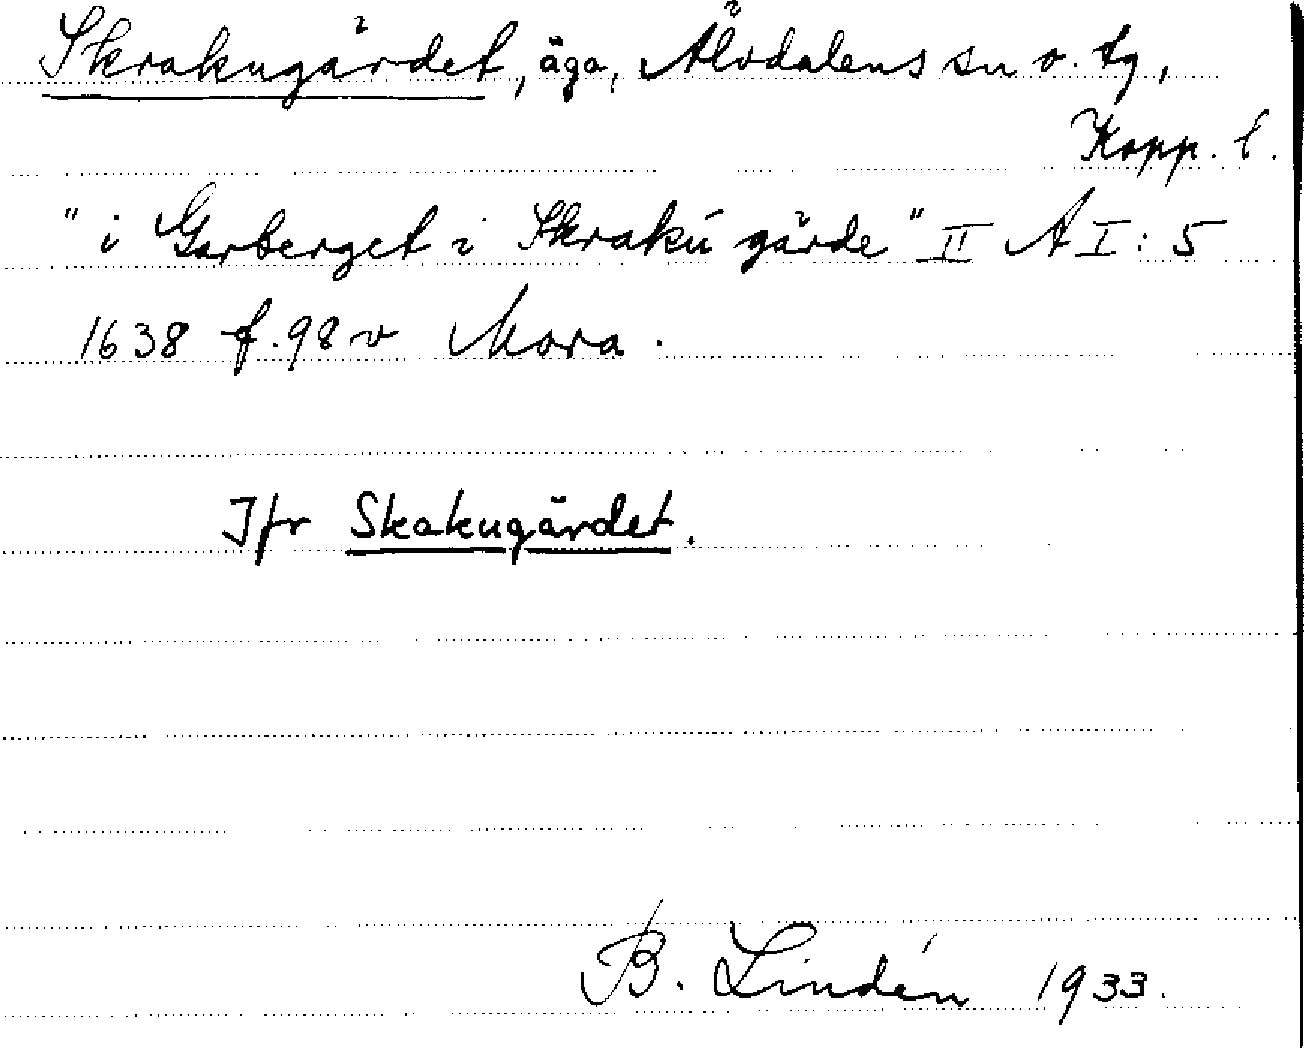 Skrakugärdet, äga, Älvdalens sn o. tg,
Kopp. l.
"i Garberget i Skrakú gärde" II A I: 5
1638 f. 98 v Mora.
Jfr Skakugärdet.
B. Lindén 1933.